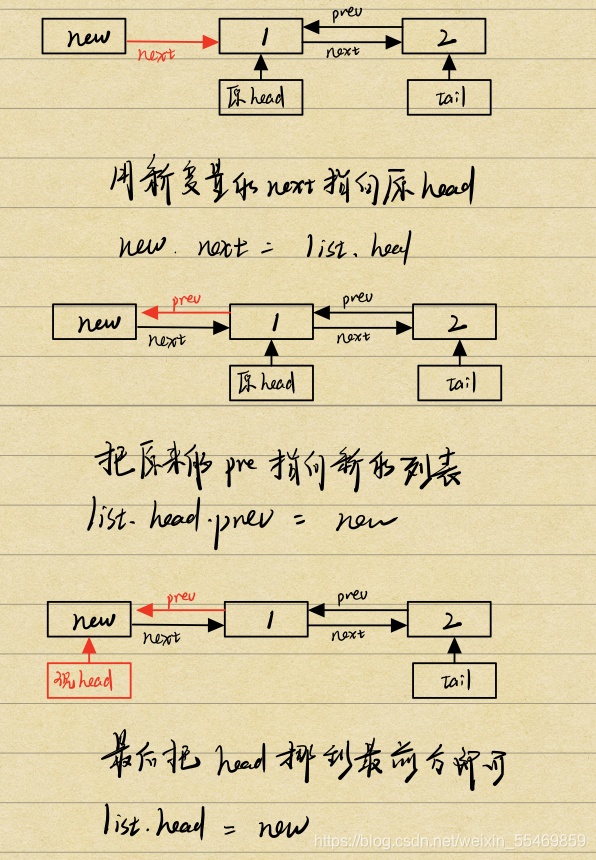 prev
new 1 2
next next
原head tail
用新变量的next指向原head
new. next = list. head
prev prev
new 1 2
next next
原head tail
把原来的 pre 指向新的列表
list. head.prev = new
prev prev
new 1 2
next next
现head tail
最后把 head 挪到最前方即可
list.head = new
https://blog.csdn.net/weixin_55469859